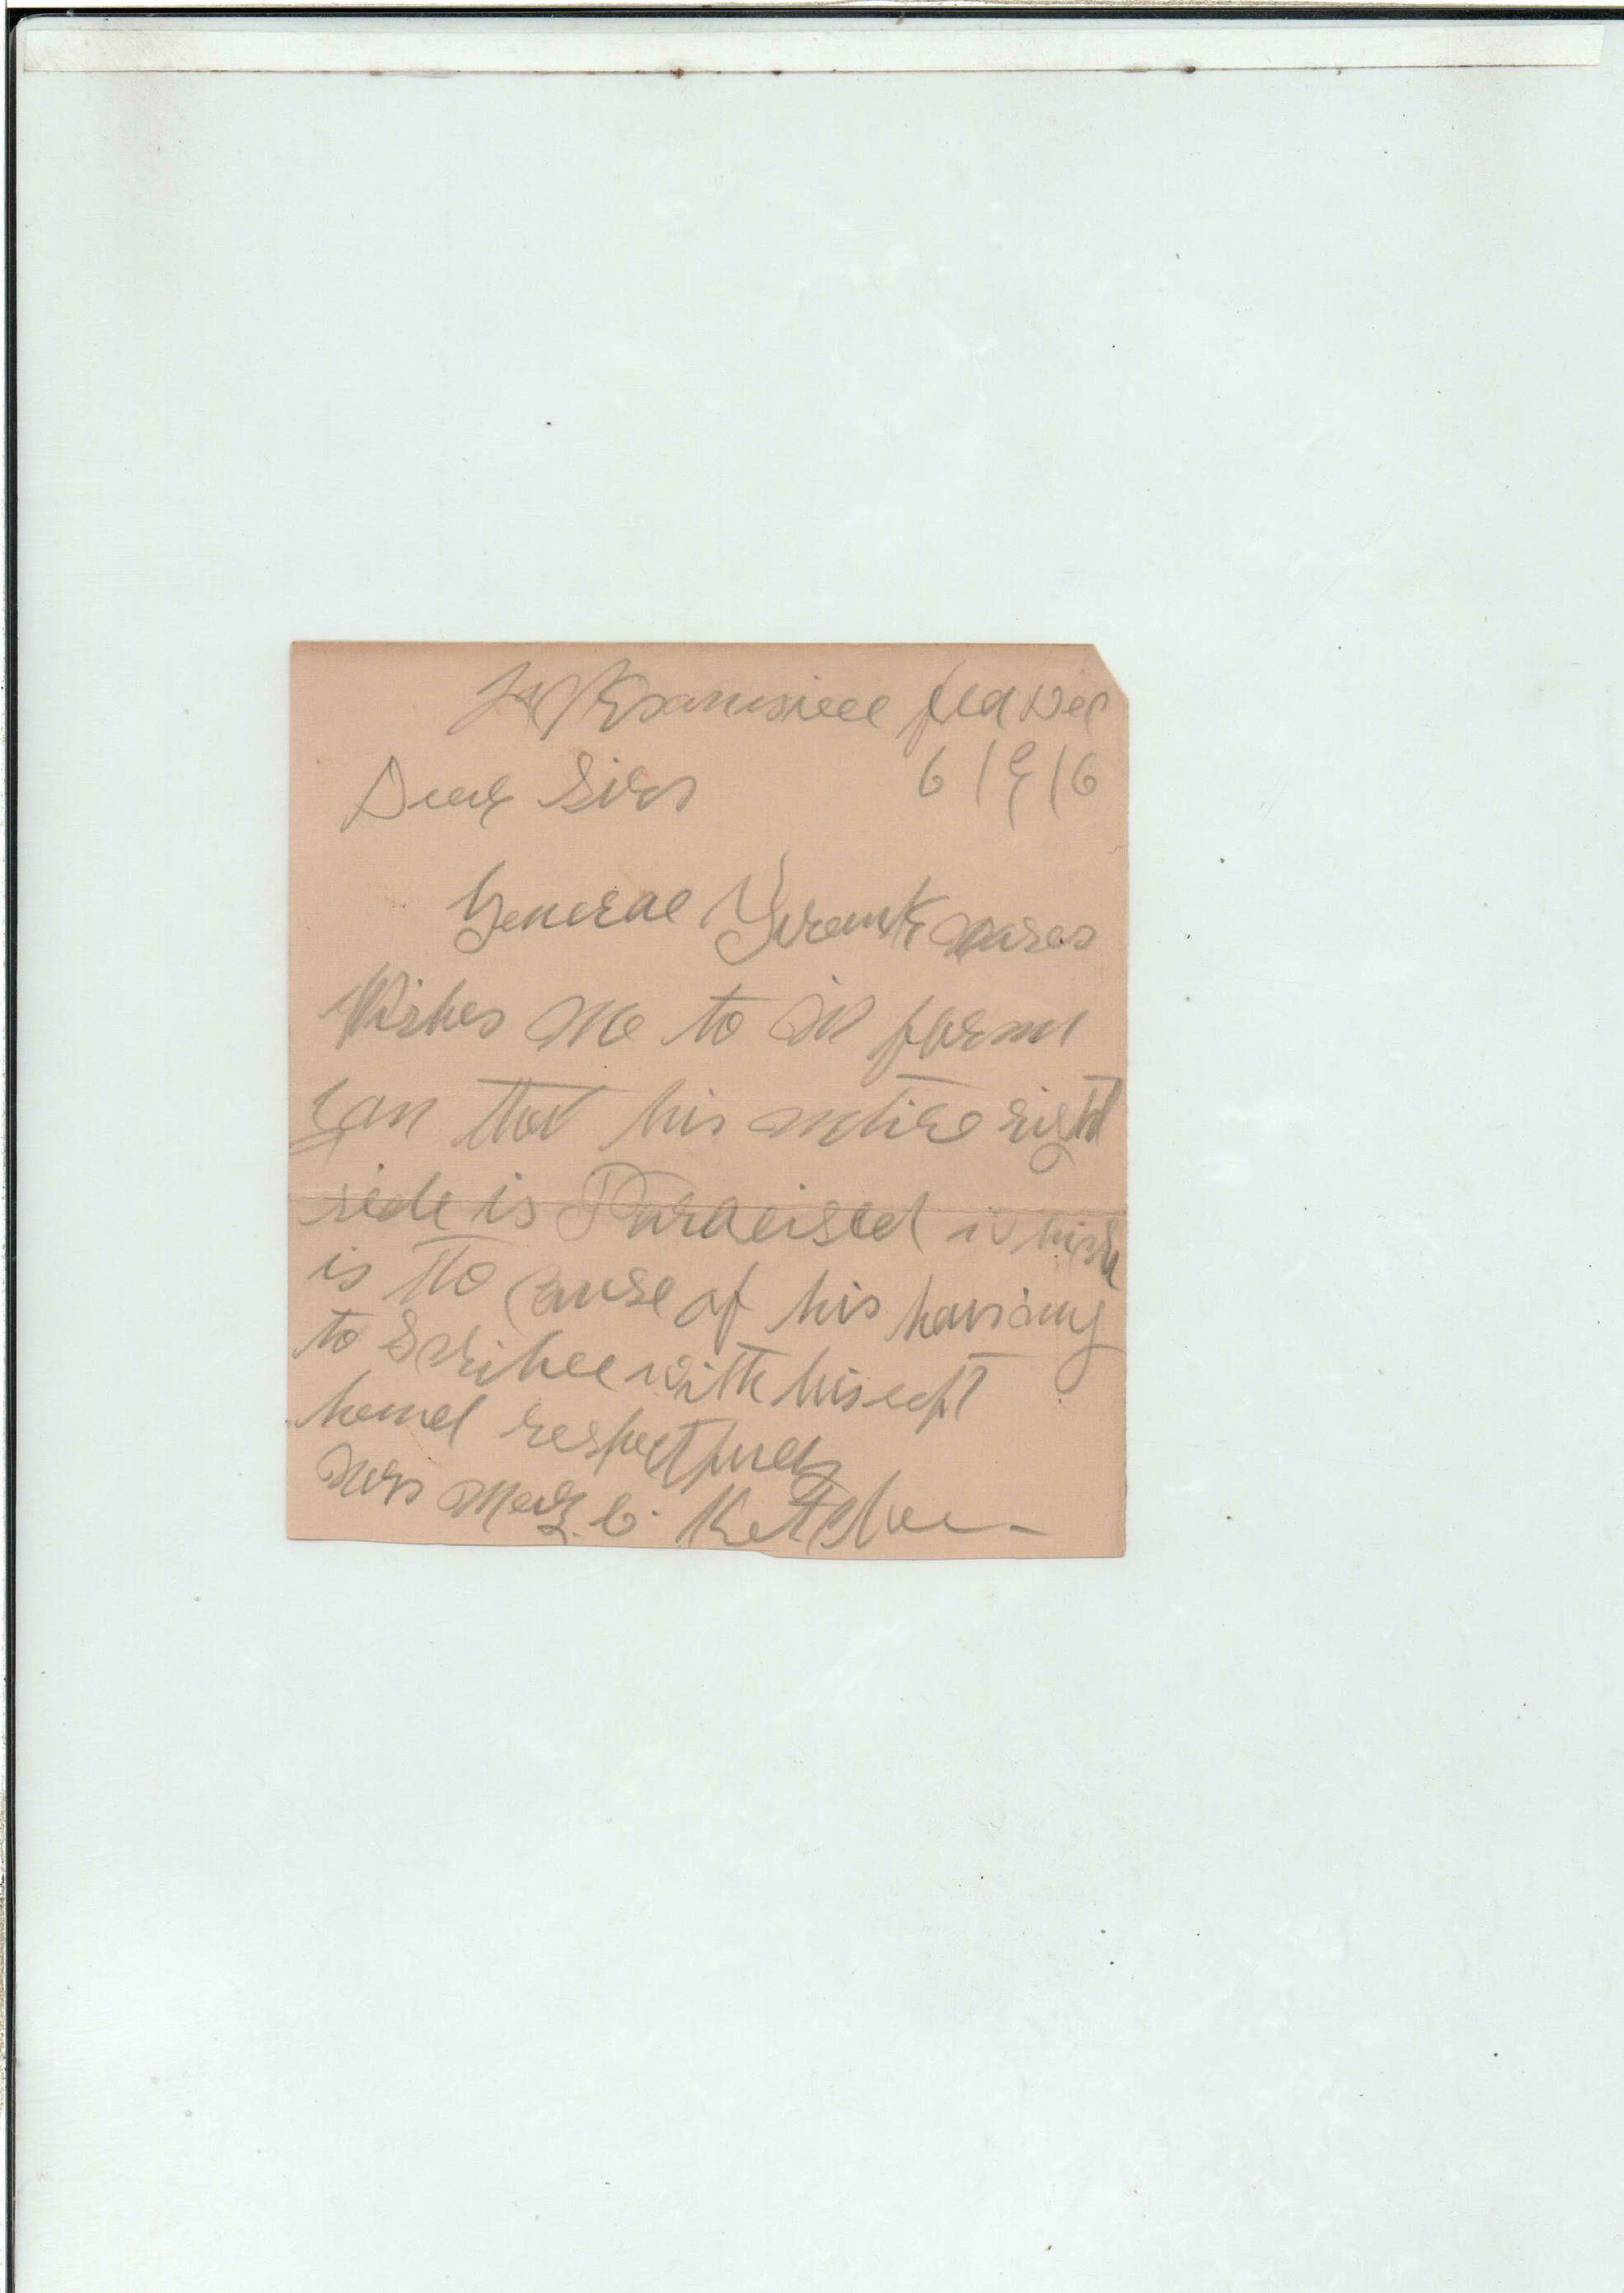 Jacksonville fla Dec
6 1916
Dear Sir
General Frank
Wishes me to in form
you that his entire right
side is Paralised which
is the cause of his having
to Scribee with his left
hand respectfully
Mrs C. Ketchu